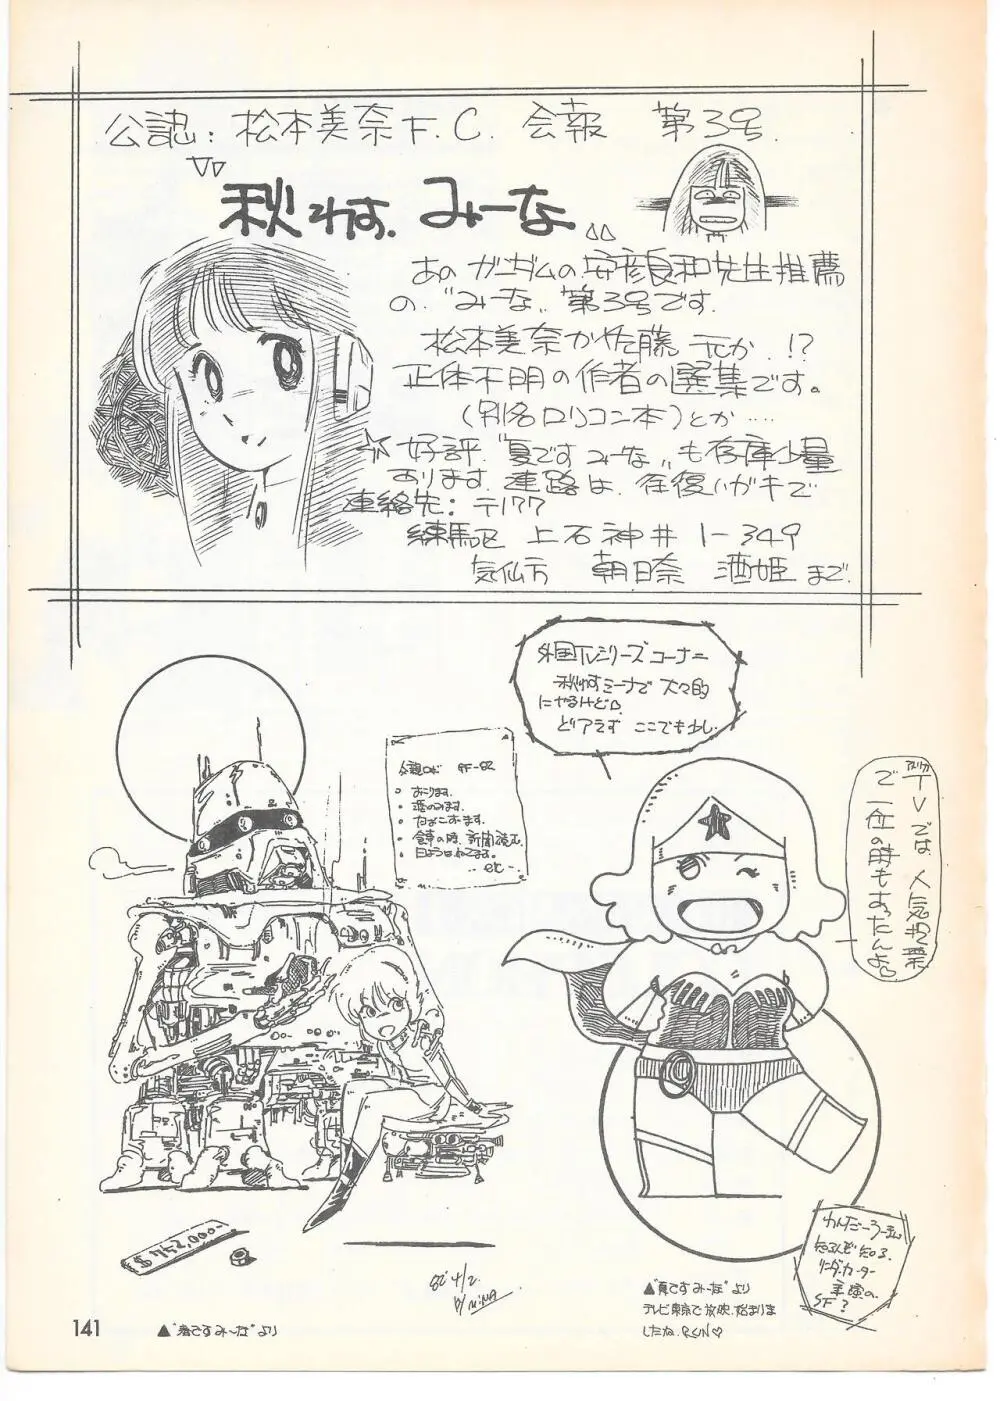 公認: 松本美奈F.C. 会報 第3号.
秋わす. みーな
あのガンダムの安彦良和先生推薦
の“みーな”第3号です.
松本美奈か佐藤 元か. !?
正体不明の作者の選集です。
(別名ロリコン本)とか‥‥
☆好評“夏ですみーな”も在庫少量
あります. 連絡は. 往復ハガキで
連絡先: 〒177
練馬区 上石神井 1-349
気仙方 朝日奈 酒姫まで.
外国TVシリーズコーナー
秋わすミーナで 大々的
にやるけど♡
とりあえず ここでも少し.
アメリカ
TVでは、人気投票
で一位の時もあったんよ♡
おこります.
酒のみます.
たばこすいます.
食事の時. 新聞読む.
日ようはねてます.
etc
$752,000-
82 4/2.
By MINA
わんだーうーまん
知る人ぞ知る.
リンダ・カーター
主演の.
SF?
▲“春ですみ〜な”より
▲“夏ですみーな”より
テレビ東京で放映. 始まりま
したね. RUN♡
141